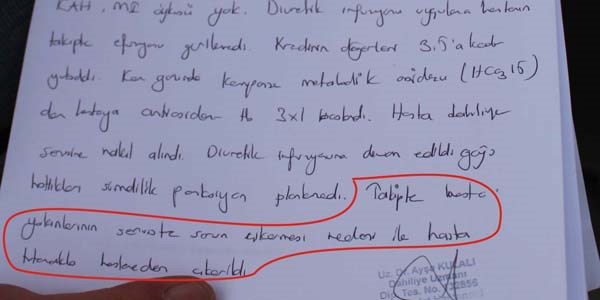 KAH, MI öyküsü yok. Diüretik infüzyonu uygulanan hastanın
takipte efüzyonu geriledi. Kreatinin değerleri 3,5'a kadar
yükseldi. Kan gazında kompanse metabolik asidozu (HCO3 15)
dan hastaya antiasidan tb 3x1 başlandı. Hasta dahiliye
servisine nakil alındı. Diüretik infüzyonuna devam edildi göğüs
hastlıkları şimdilik ponksiyon planlamadı. Takipte hasta
yakınlarının serviste sorun çıkarması nedeni ile hasta
hastaneden çıkarıldı.
Uz. Dr. Ayşe KULALI
Dahiliye Uzmanı
Dip. Tes. No.